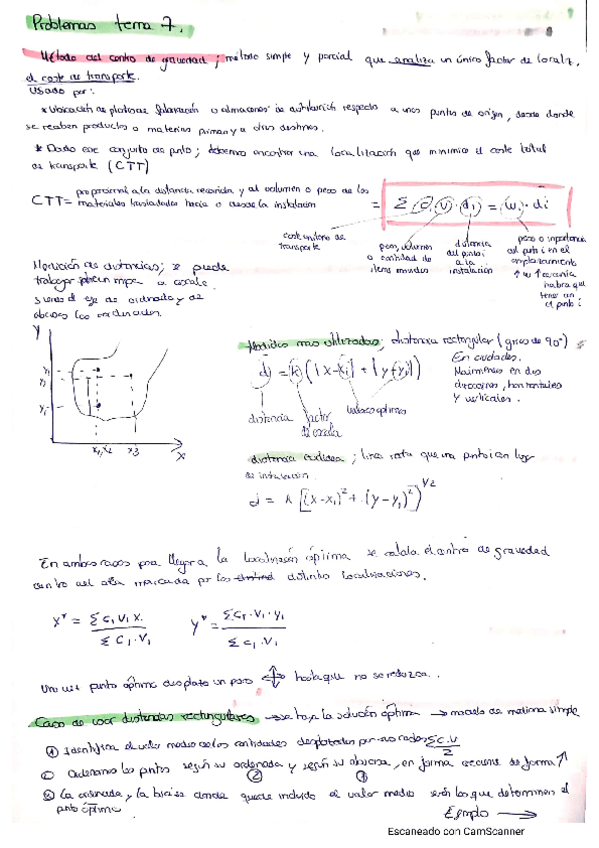 Problemas tema 7.
Método del centro de gravedad; método simple y parcial que analiza un único factor de localiz,
el coste de transporte.
Usado por:
* Ubicación de plantas de fabricación o almacenes de distribución respecto a unos puntos de origen, desde donde
se reciben productos o materias primas y a otros destinos.
* Dado ese conjunto de puntos; debemos encontrar una localización que minimice el coste total
de transporte (CTT)
CTT= proporcional a la distancia recorrida y al volumen o peso de los
materiales trasladados hacia o desde la instalación
= Σ (ci · vi · di) = wi · di
coste unitario de
transporte
peso, volumen
o cantidad de
items movidos
distancia
del punto i
a la
instalación
peso o importancia
del punto i en el
emplazamiento
↑ w ↑ cercanía
habrá que
tener en
el punto i
Medición de distancias; se puede
trabajar sobre un mapa a escala.
eje de ordenadas y de
Y
X
Medidas más utilizadas; distancia rectangular (giros de 90º)
d = k (|x-xi| + |y-yi|)
En ciudades.
Nos movemos en dos
direcciones, horizontales
y verticales.
distancia
factor
de escala
distancia euclídea; línea recta que une punto i con lugar
de instalación
d = k [(x-xi)² + (y-yi)²]^1/2
En ambos casos para llegar a la localización óptima se calcula el centro de gravedad
dentro del área marcada por las distintas localizaciones.
x* = Σ ci vi xi / Σ ci · vi
y* = Σ ci · vi · yi / Σ ci · vi
Una vez punto óptimo desplazo un poco hasta que no se reduzca.
Caso de usar distancias rectangulares → se halla la solución óptima → modelo de mediana simple
① Identificar el valor medio de las cantidades desplazadas por sus costes Σc.v / 2
② Ordenamos los puntos según su ordenada y según su abscisa, en forma creciente
③ La ordenada y la abscisa donde quede incluido el valor medio serán los que determinen el
pto óptimo
Ejemplo →
Escaneado con CamScanner